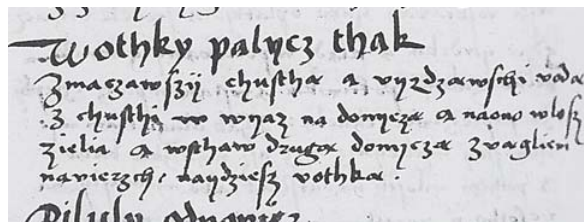 Wothky palycz thak
Zmaczawszÿ chusthą a vyrdzawschi vodą
z chusthi w wÿaz na donyczą a naono wlosz
zielia a wsthaw drugą doniczą zvąglien
navierzch, naydziesz vothką.
Pilulÿ